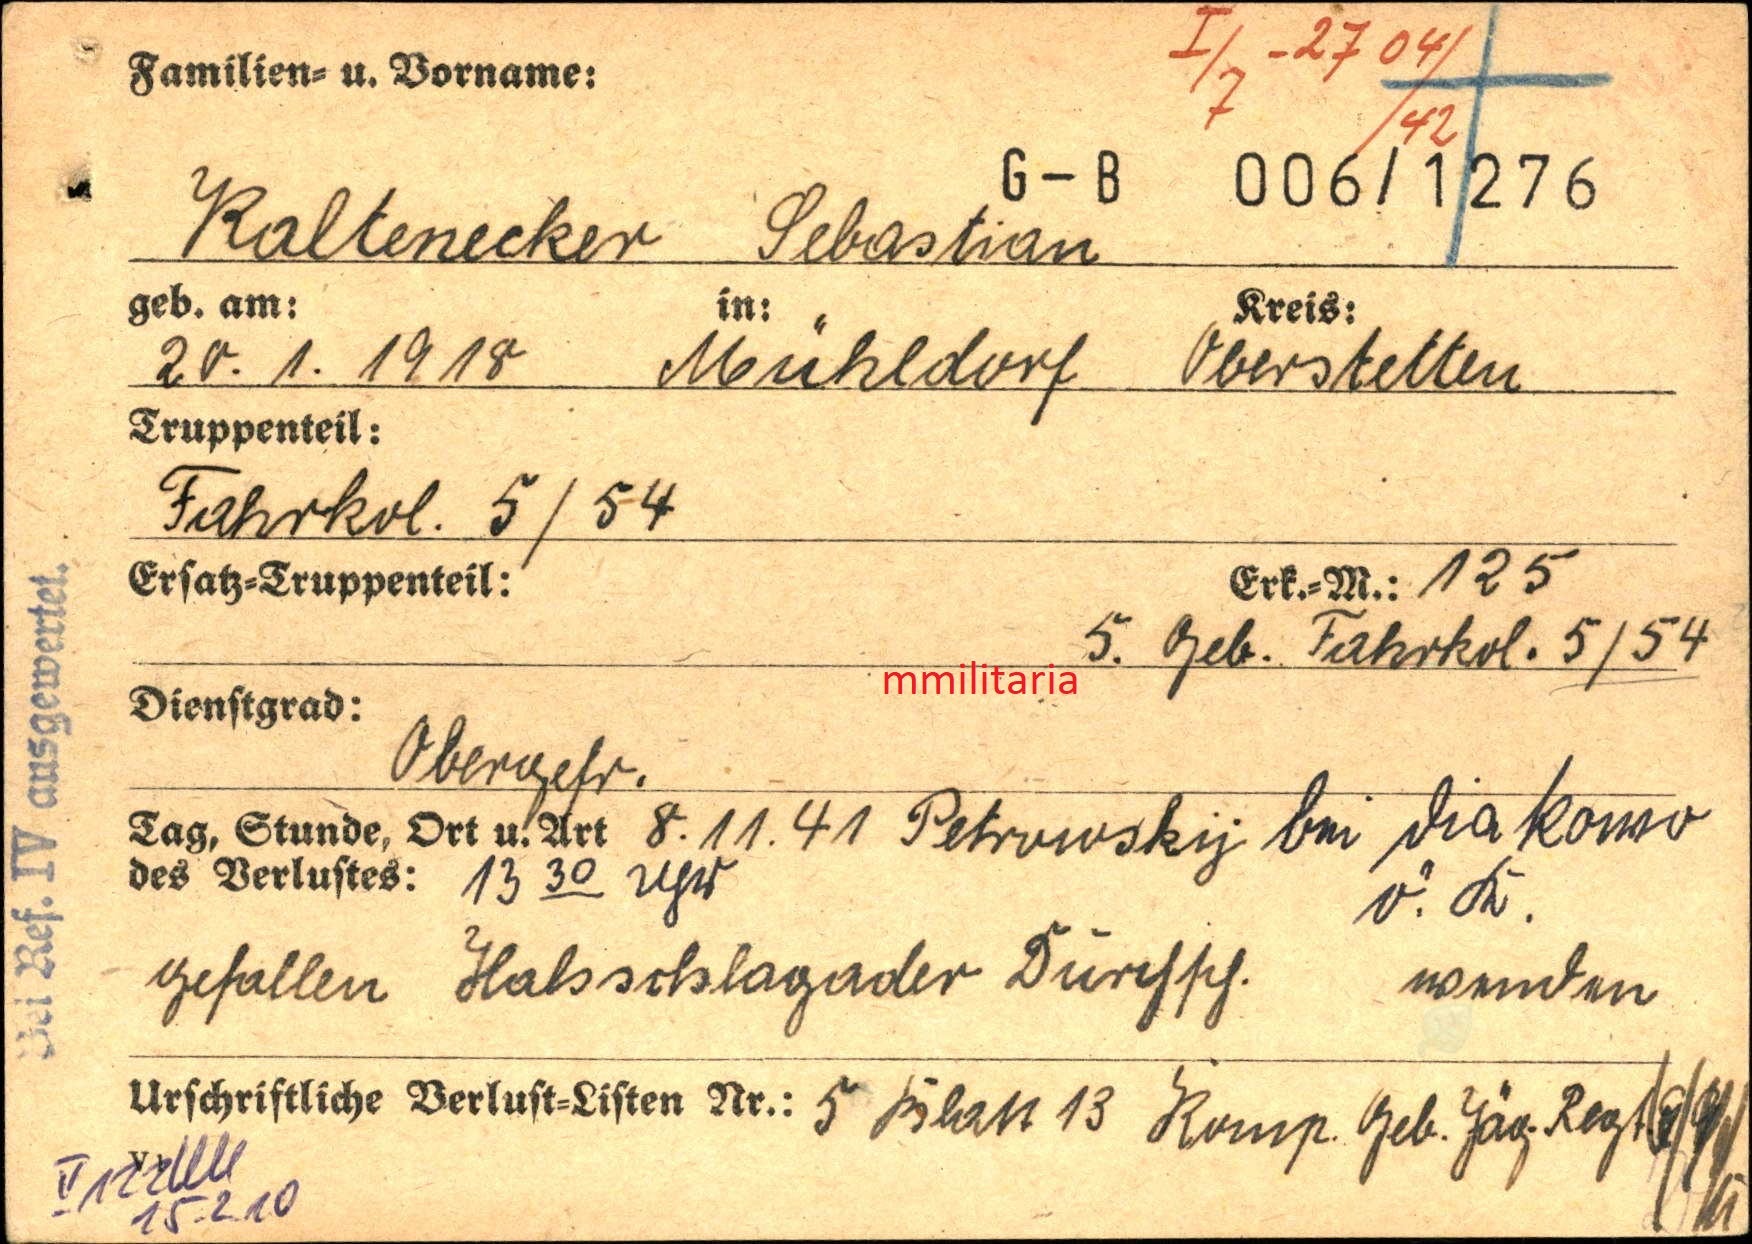 I/7 -27 04/42
Familien- u. Vorname:
G-B 006/1276
Kaltenecker Sebastian
geb. am: in: Kreis:
20. 1. 1918 Mühldorf Oberstetten
Truppenteil:
Fahrkol. 5/54
Ersatz-Truppenteil: Erk.-M.: 125
5. Geb. Fahrkol. 5/54
mmilitaria
Dienstgrad:
Obergefr.
Tag, Stunde, Ort u. Art 8.11.41 Petrowskij bei Diakowo
des Verlustes: 13 30 Uhr ö. K.
gefallen Halsschlagader Durchsch. wenden
Urschriftliche Verlust-Listen Nr.: 5 Blatt 13 Komp. Geb. Jäg. Regt.
V
15.2.10
Bei Ref. IV ausgewertet.